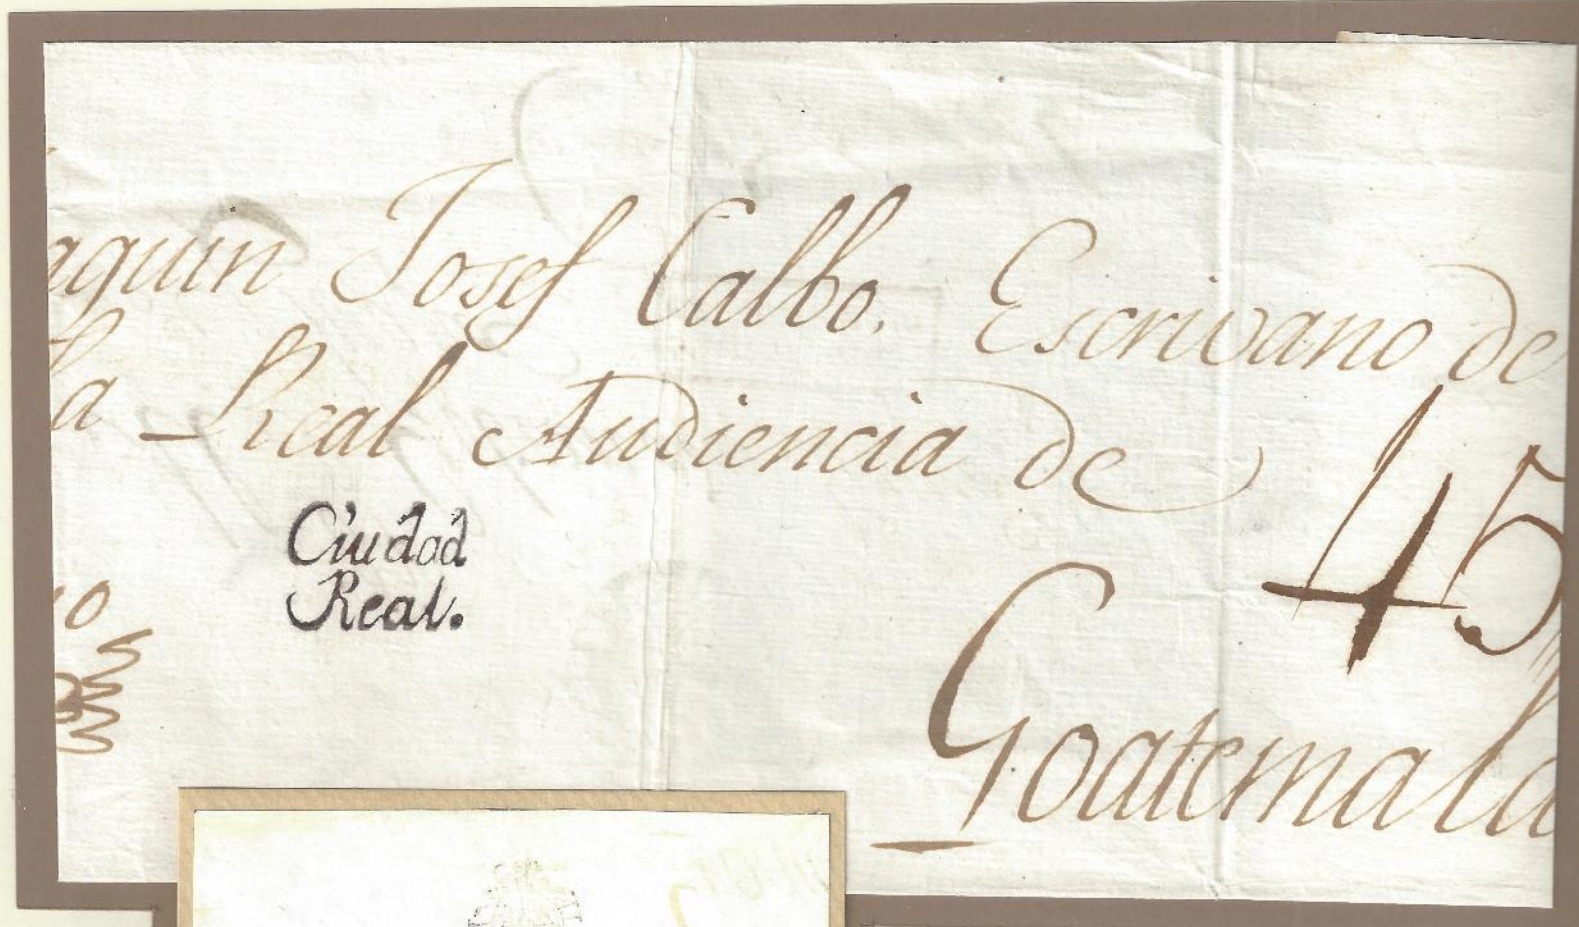 aquin Josef Calbo. Escrivano de
la Real Audiencia de
45
Ciudad
Real.
Goatemala